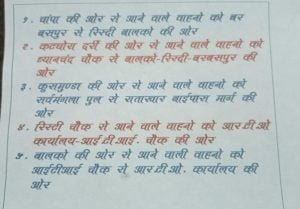 १. चांपा की ओर से आने वाले वाहनो को बर
बसपुर से रिस्दी बालको की ओर
२. कटघोरा दर्री की ओर से आने वाले वाहनो को
ध्यानचंद चौक से बालको-रिस्दी-बरबसपुर की
ओर
३. कुसमुण्डा की ओर से आने वाले वाहनो को
सर्वमंगला पुल से बाईपास मार्ग की
ओर
४. रिस्दी चौक से आने वाले वाहनो को आर टी ओ
कार्यालय-आई टी आई. चौक की ओर
५. बालको की ओर से आने वाली वाहनो को
आईटीआई चौक से आर टी ओ. कार्यालय की
ओर